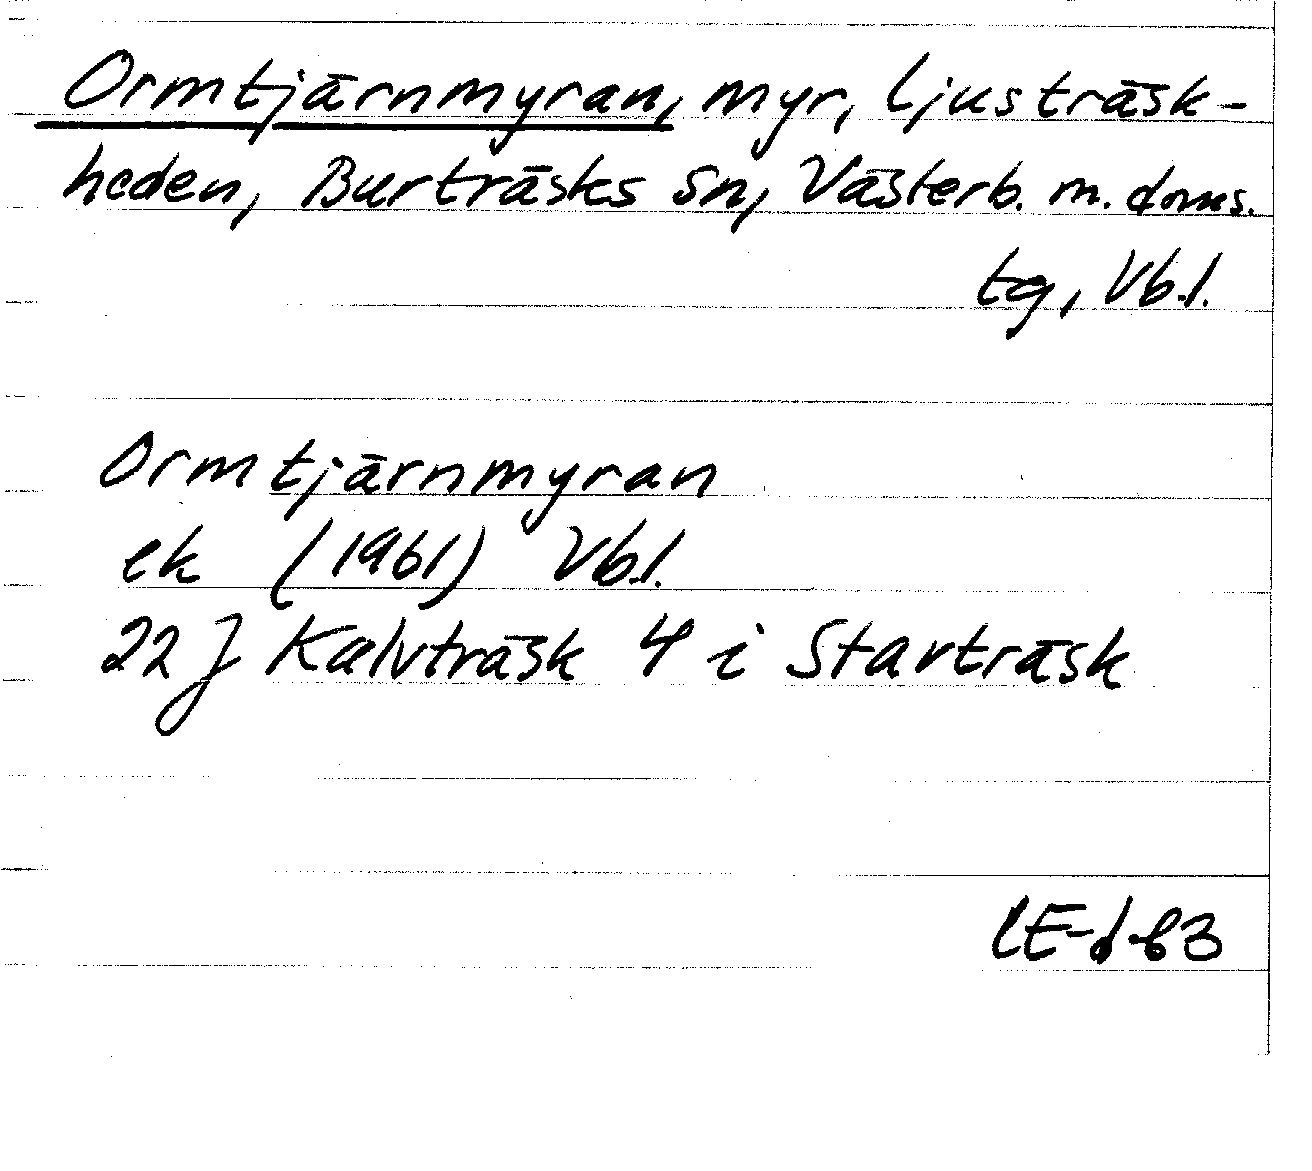 Ormtjärnmyran, myr, Ljusträsk-
heden, Burträsks sn, Västerb. m. doms.
tg, Vb.l.
Ormtjärnmyran
ek (1961) Vb.l.
22 J Kalvträsk 4 i Starträsk